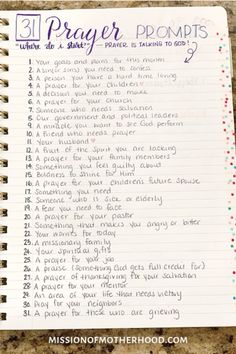 31 Prayer PROMPTS
"where do i start?" — PRAYER IS TALKING TO GOD!
1. Your goals and plans for this month
2. A sin(or sins) you need to confess
3. A person you have a hard time loving
4. A prayer for your children
5. A decision you need to make
6. A prayer for your church
7. Someone who needs salvation
8. Our government and political leaders
9. A miracle you want to see God perform
10. A friend who needs prayer
11. Your husband
12. A fruit of the Spirit you are lacking
13. A prayer for your family members
14. Something you feel guilty about
15. Boldness to shine for Him
16. A prayer for your children's future spouse
17. Something you need
18. Someone who is sick or elderly
19. A fear you need to face
20. A prayer for your pastor
21. Something that makes you angry or bitter
22. Your worries for today
23. A missionary family
24. Your spiritual gifts
25. A prayer for your job
26. A praise (something God gets full credit for)
27. A prayer of thanksgiving for your salvation
28. A prayer for your mentor
29. An area of your life that needs victory
30. Pray for your neighbors
31. A prayer for those who are grieving
MISSIONOFMOTHERHOOD.COM